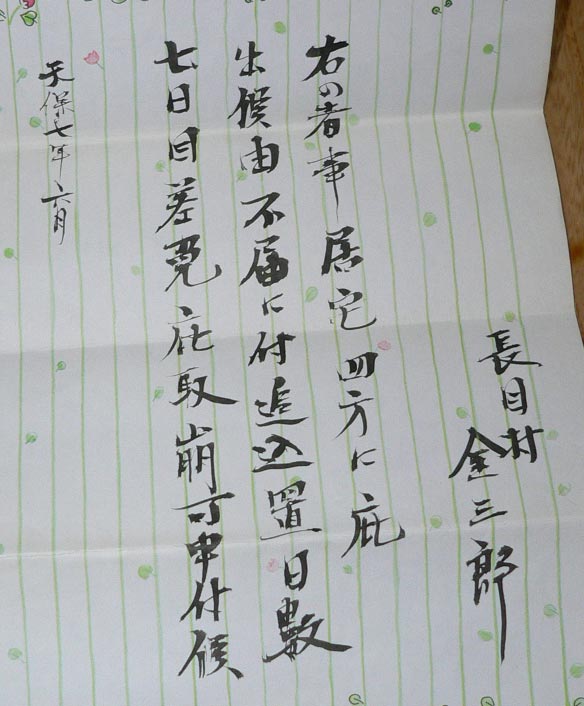 長目村
金三郎
右の者事居宅四方に庇
出候由不届に付追込置日数
七日目差免庇取崩可申付候
天保七年六月